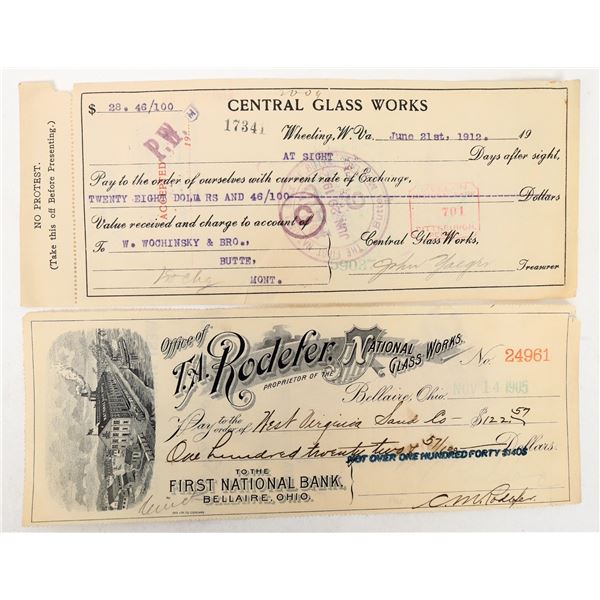 NO PROTEST.
(Take this off Before Presenting.)
$ 28. 46/100
CENTRAL GLASS WORKS
P.W.
ACCEPTED
19
17341
Wheeling, W. Va. June 21st, 1912. 19
AT SIGHT Days after sight,
Pay to the order of ourselves with current rate of Exchange,
TWENTY EIGHT DOLLARS AND 46/100 Dollars
701
Value received and charge to account of
To W. WOCHINSKY & BRO.,
Central Glass Works,
BUTTE,
MONT.
John Yaeger
Treasurer
Office of
T.A. Rodefer.
PROPRIETOR OF THE
NATIONAL GLASS WORKS.
No. 24961
Bellaire, Ohio. NOV 14 1905
Pay to the order of West Virginia Sand Co - $122.57
One hundred twenty two & 57/100 Dollars.
NOT OVER ONE HUNDRED FORTY $140$
TO THE
FIRST NATIONAL BANK,
BELLAIRE, OHIO.
C.M. Rodefer